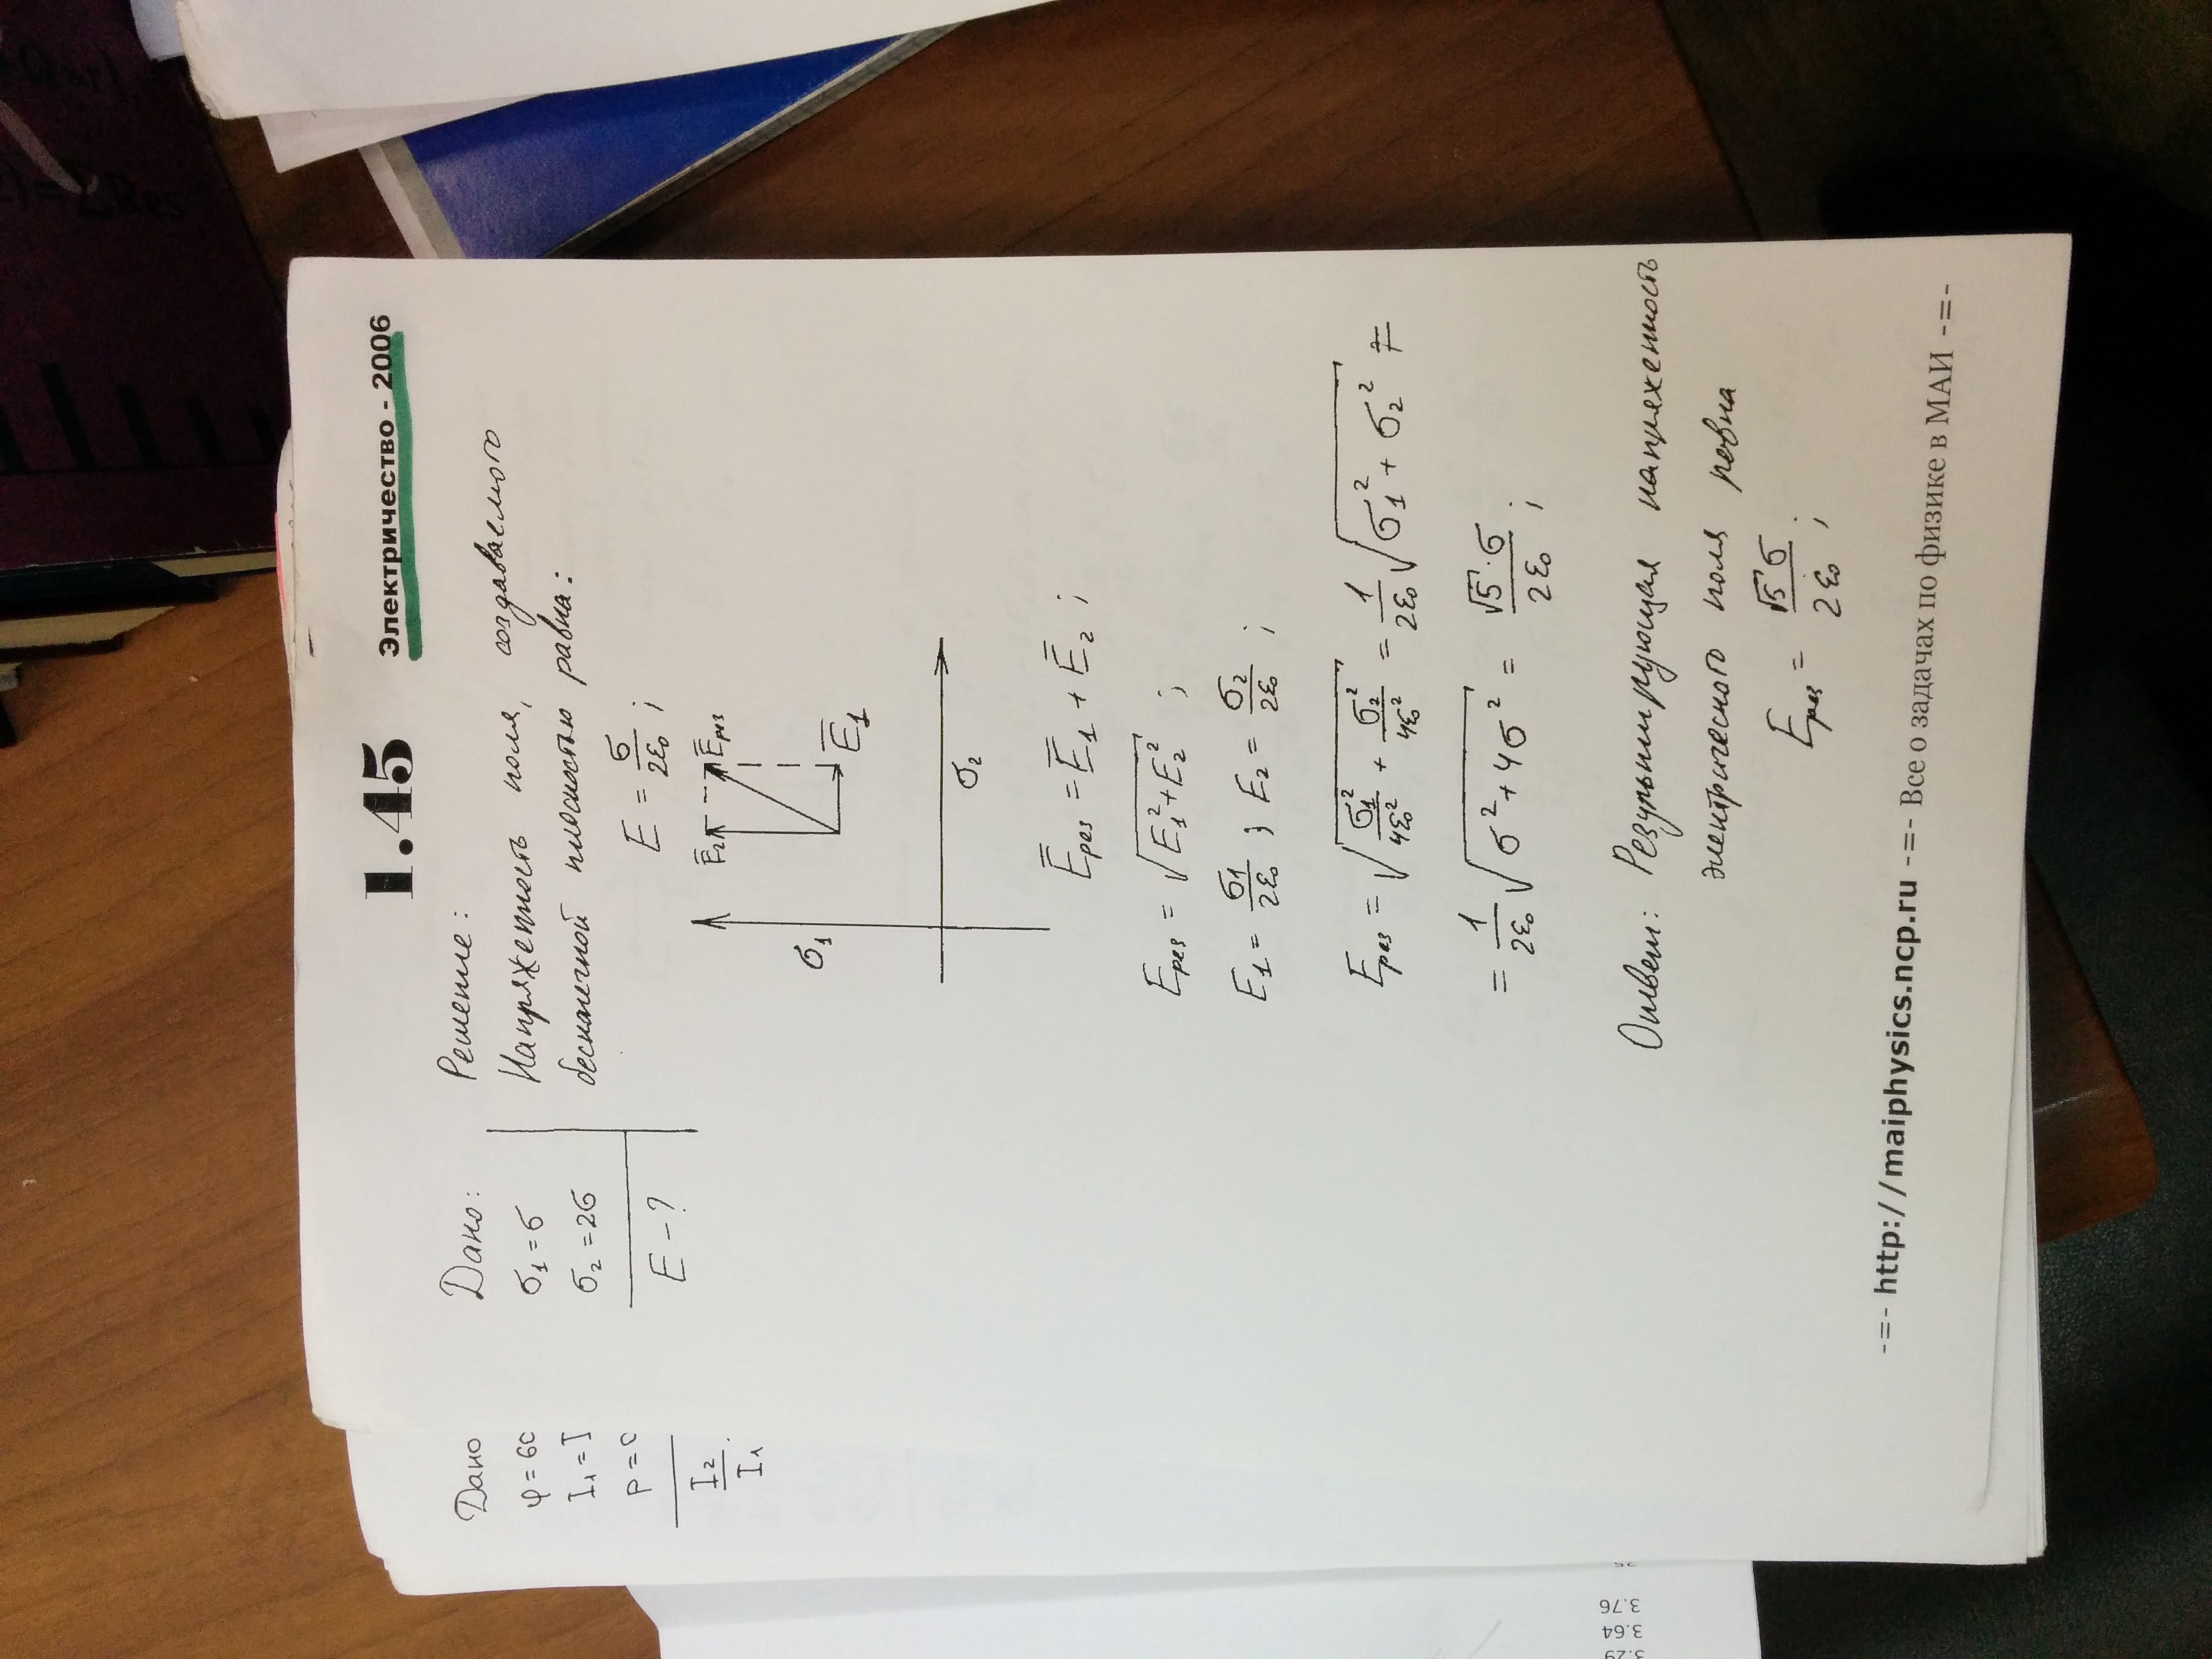 1.45 Электричество - 2006
Дано:
σ₁ = σ
σ₂ = 2σ
E - ?
Решение:
Напряженность поля, создаваемого
бесконечной плоскостью равна:
E = σ/2ε₀ ;
σ₁
E̅₂ E̅рез
E̅₁
σ₂
E̅рез = E̅₁ + E̅₂ ;
Eрез = √(E₁² + E₂²) ;
E₁ = σ₁/2ε₀ ; E₂ = σ₂/2ε₀ ;
Eрез = √(σ₁²/4ε₀² + σ₂²/4ε₀²) = 1/2ε₀ √(σ₁² + σ₂²) =
= 1/2ε₀ √(σ² + 4σ²) = √5·σ/2ε₀ ;
Ответ: Результирующая напряженность
электрического поля равна
Eрез = √5σ/2ε₀ ;
-=- http://maiphysics.ncp.ru -=- Все о задачах по физике в МАИ -=-
Дано
φ = 60
I₁ = I
p = 0
I₂/I₁
3.76
3.64
3.29